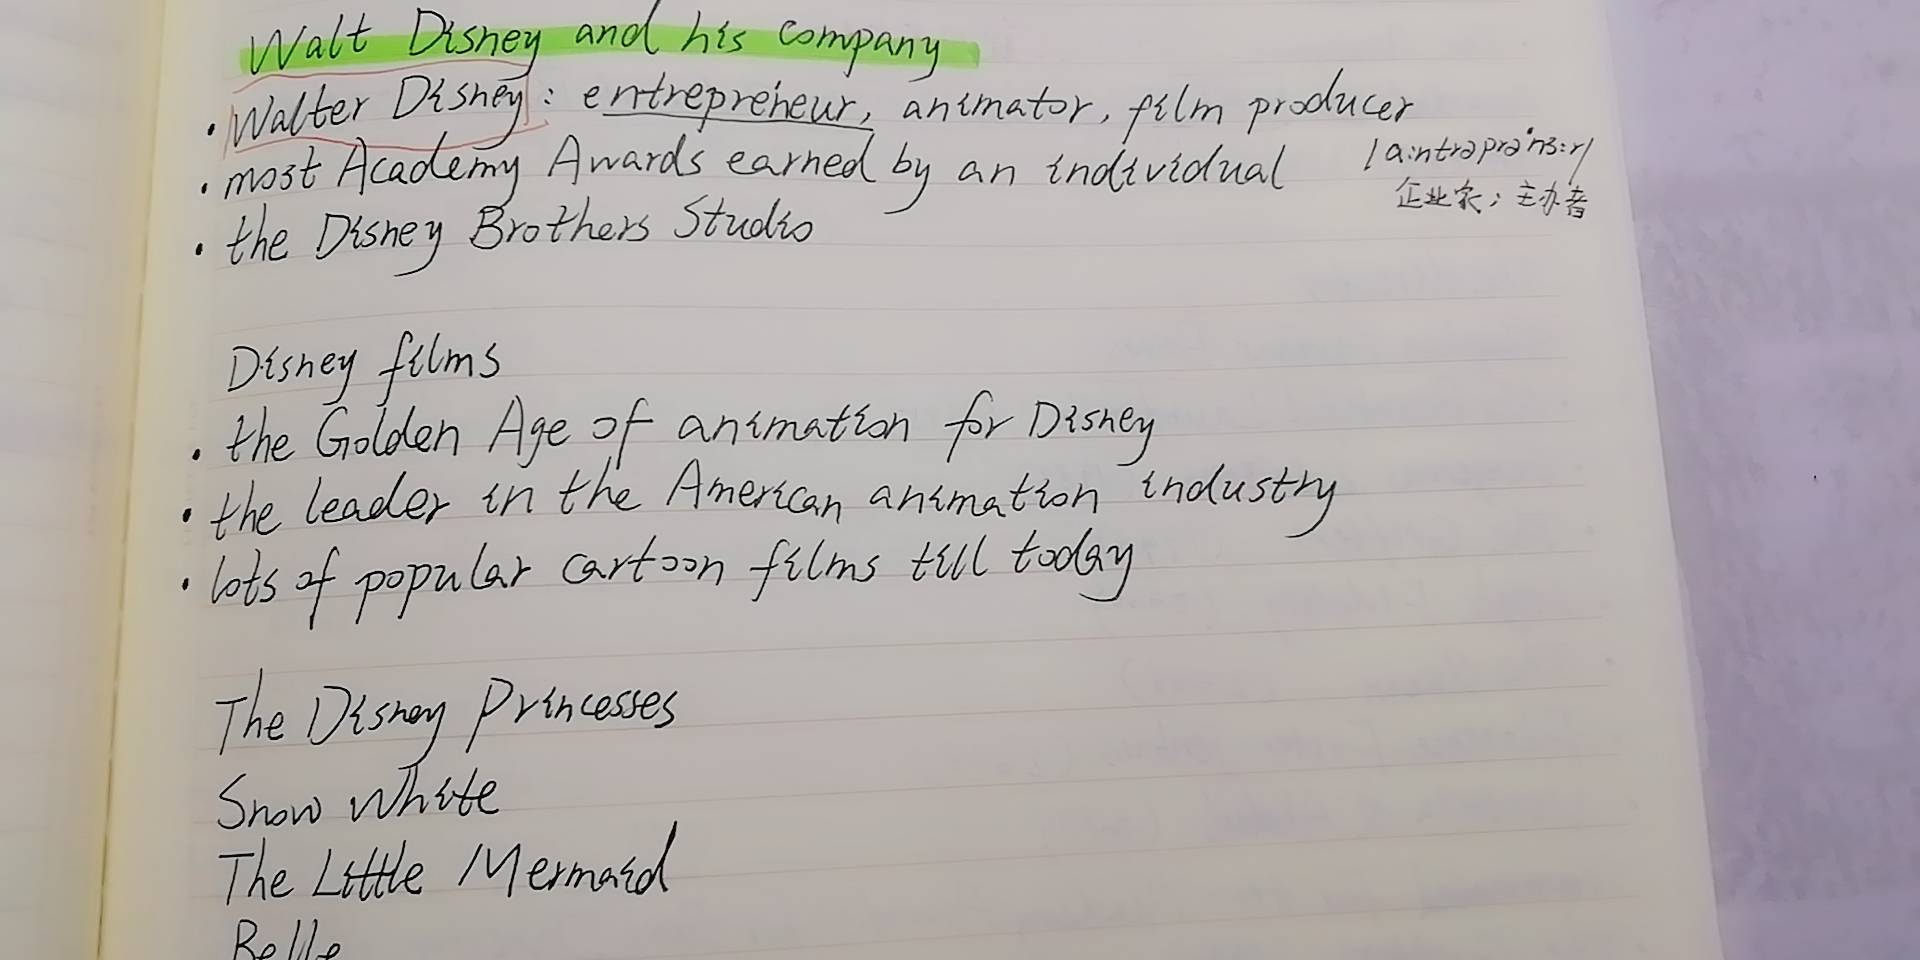 Walt Disney and his company
· Walter Disney: entrepreneur, animator, film producer
· most Academy Awards earned by an individual
/ɑ:ntrəprəˈnɜ:r/
企业家；主办者
· the Disney Brothers Studio
Disney films
· the Golden Age of animation for Disney
· the leader in the American animation industry
· lots of popular cartoon films till today
The Disney Princesses
Snow White
The Little Mermaid
Belle